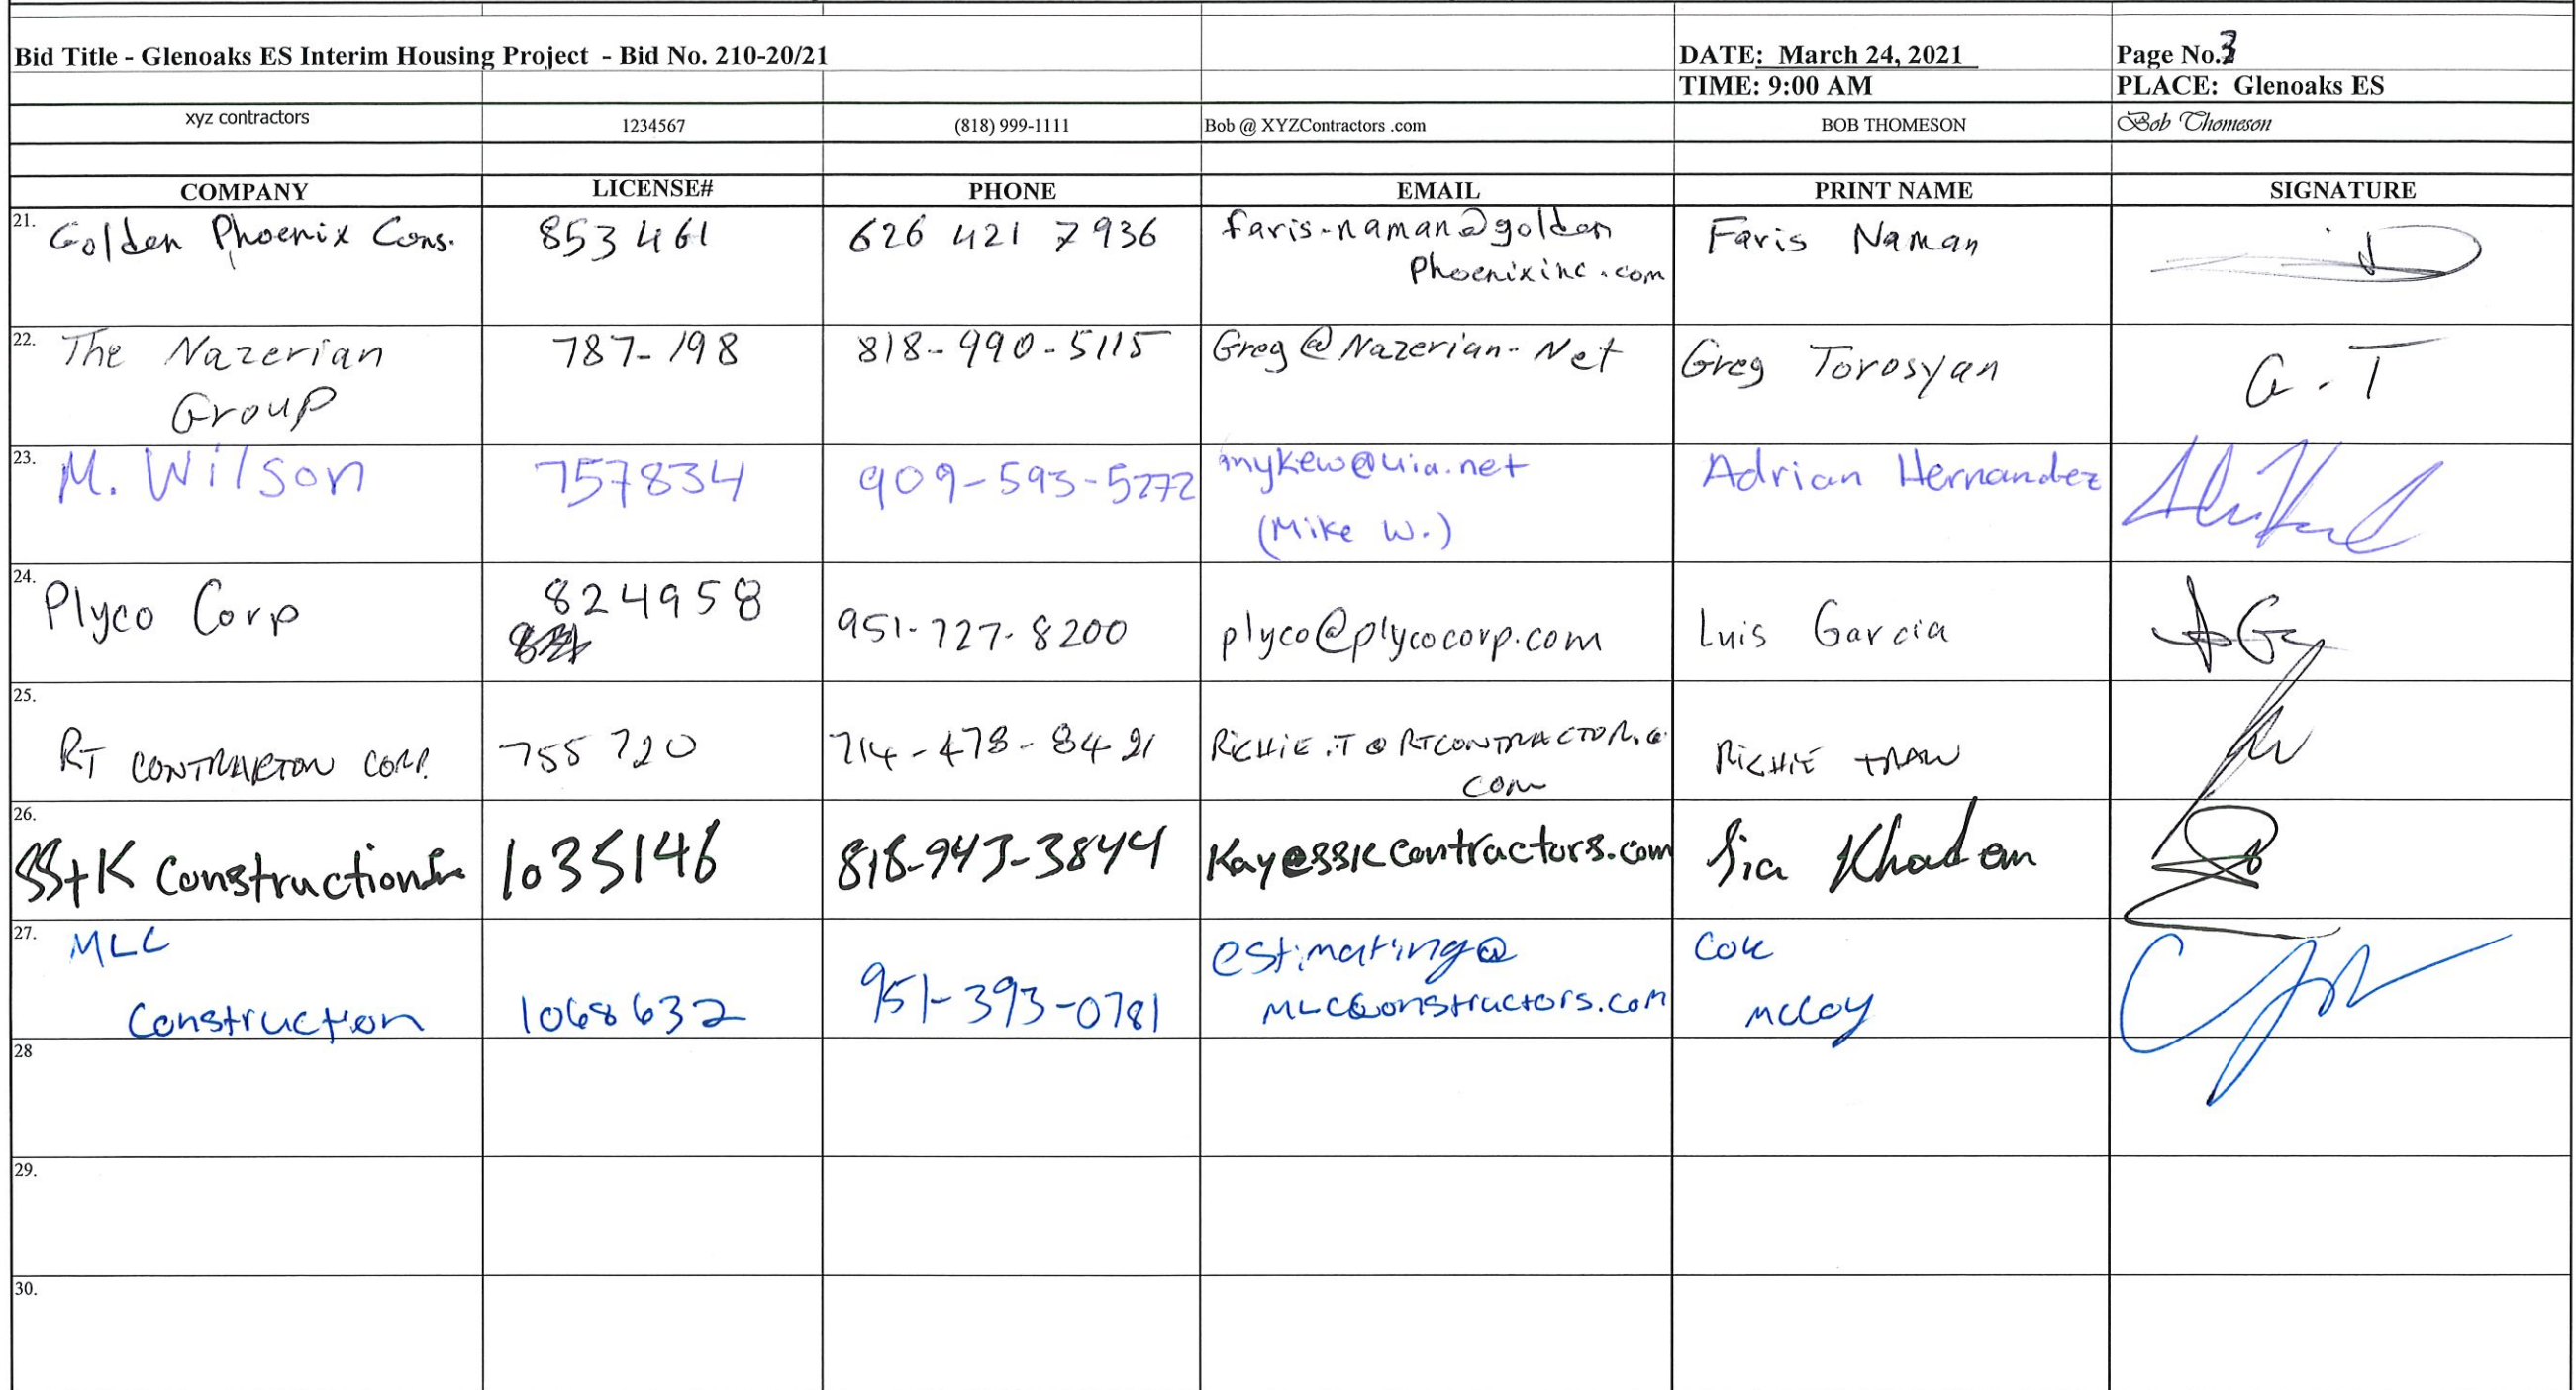 Bid Title - Glenoaks ES Interim Housing Project - Bid No. 210-20/21 DATE: March 24, 2021 Page No. 3
TIME: 9:00 AM PLACE: Glenoaks ES
xyz contractors 1234567 (818) 999-1111 Bob @ XYZContractors .com BOB THOMESON Bob Thomeson
COMPANY LICENSE# PHONE EMAIL PRINT NAME SIGNATURE
21. Golden Phoenix Cons. 853461 626 421 7936 faris-naman@golden Faris Naman
Phoenixinc.com
22. The Nazerian 787-198 818-990-5115 Greg@Nazerian-Net Greg Torosyan G.T
Group
23. M. Wilson 757834 909-593-5272 mykew@uia.net Adrian Hernandez
(Mike W.)
24. Plyco Corp 824958 951-727-8200 plyco@plycocorp.com Luis Garcia
25.
RT CONTRACTOR CORP. 755720 714-478-8421 RICHIE.T@RTCONTRACTOR. RICHIE TRAN
COM
26.
SS+K Construction Inc 1035146 818-943-3844 Kay@sskcontractors.com Sia Khadem
27. MLC estimating@ Cole
Construction 1068632 951-393-0781 MLCConstructors.com McCoy
28
29.
30.